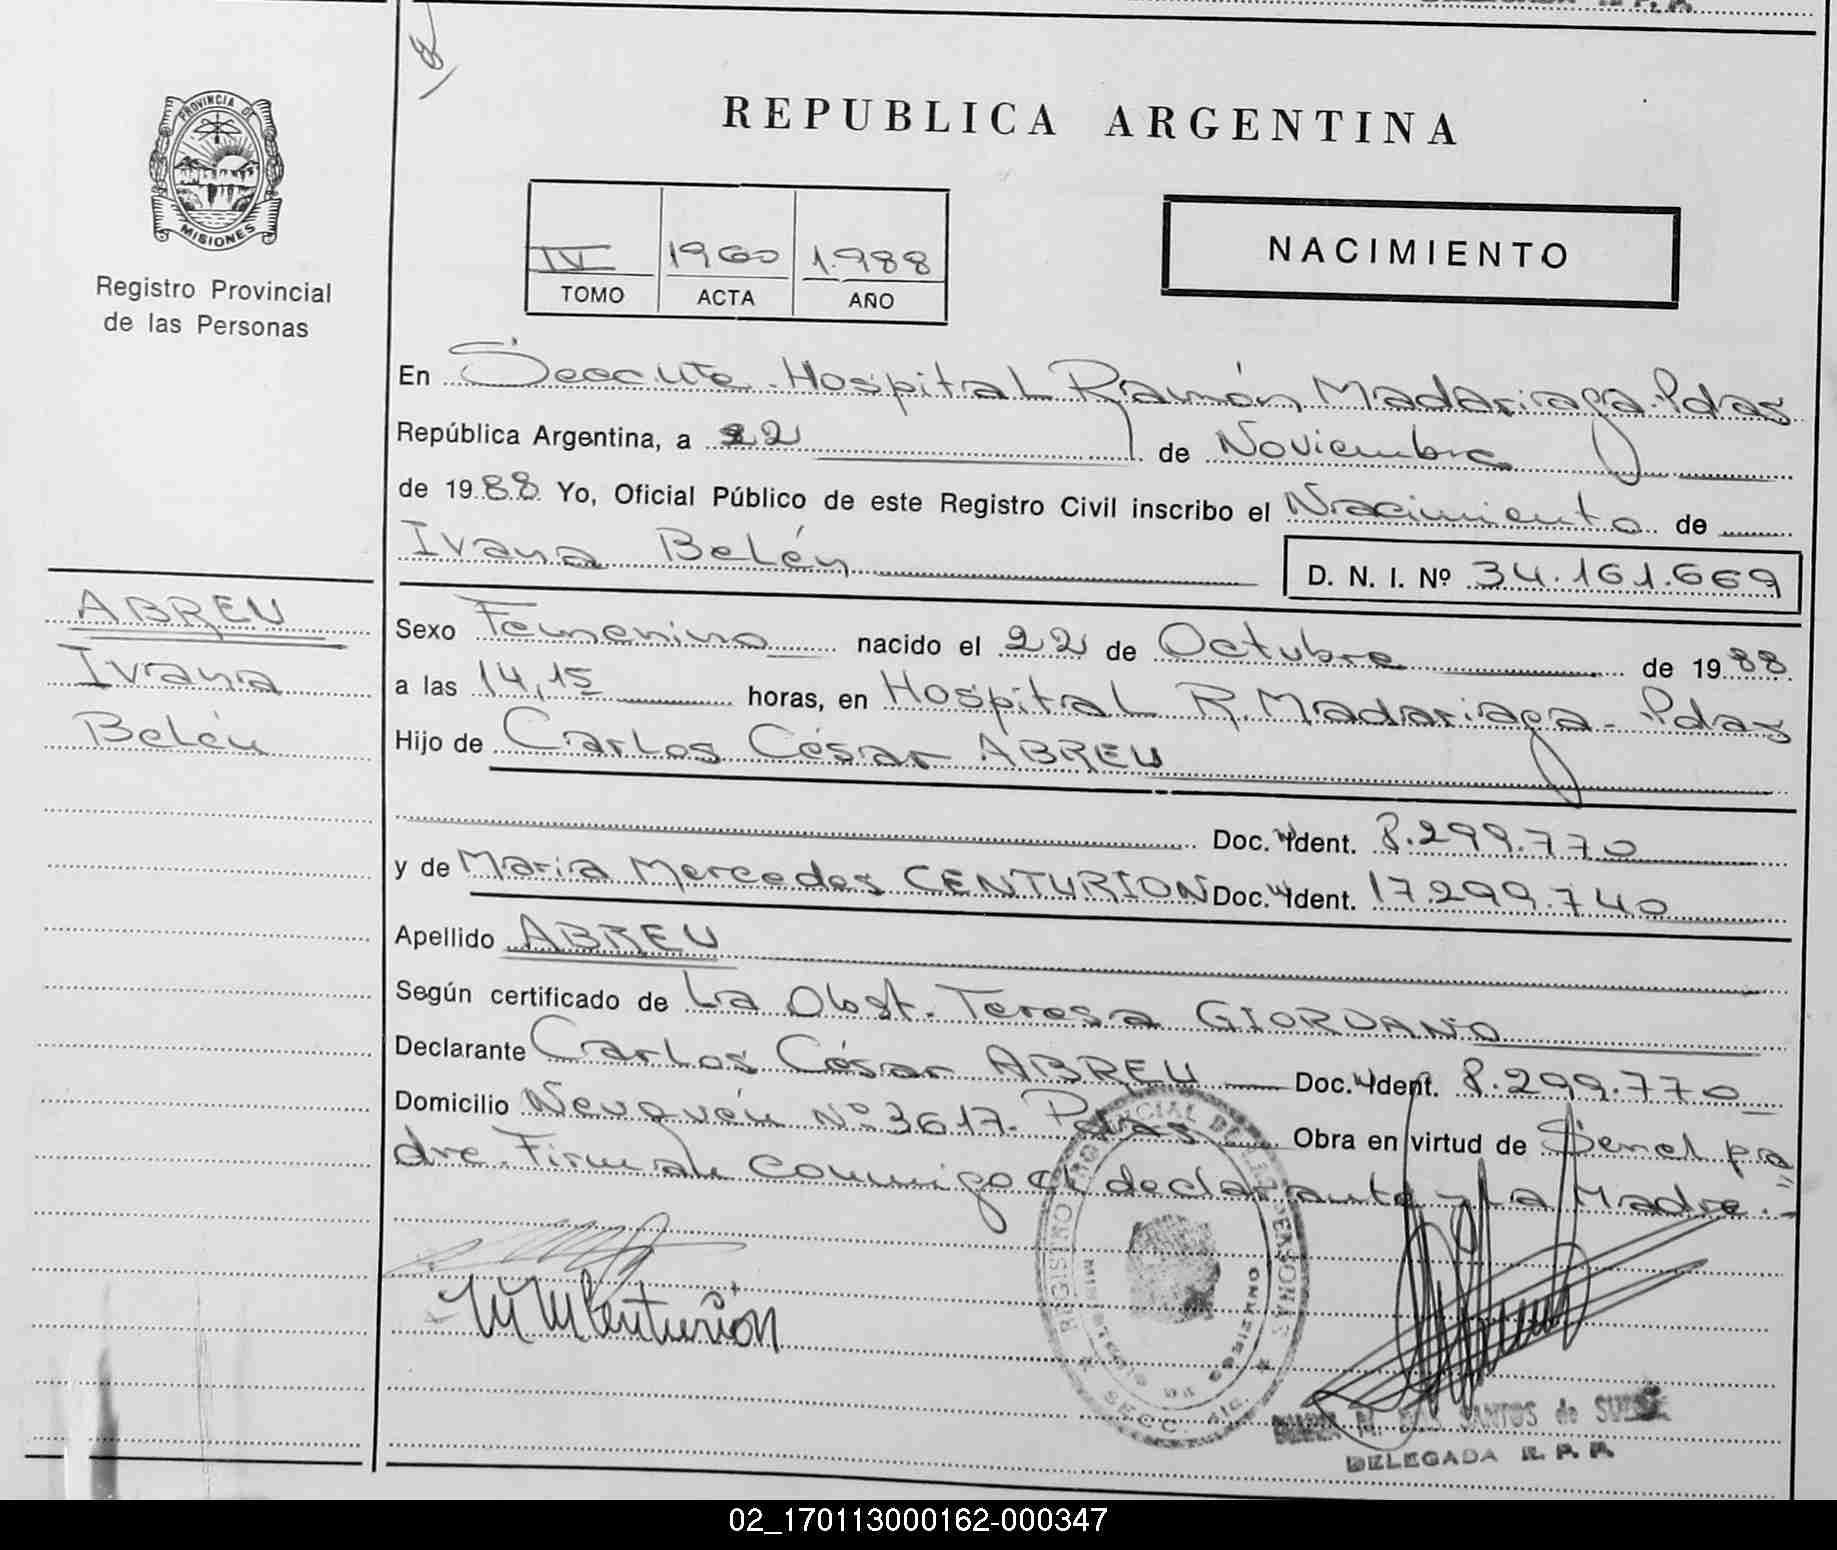 REPUBLICA ARGENTINA
PROVINCIA DE
MISIONES
Registro Provincial
de las Personas
IV 1960 1.988
TOMO ACTA AÑO
NACIMIENTO
En Secc. Hospital Ramón Madariaga. Pdas
República Argentina, a 22 de Noviembre
de 1988 Yo, Oficial Público de este Registro Civil inscribo el Nacimiento de
Ivana Belén
D. N. I. Nº 34.161.669
ABREU
Ivana
Belén
Sexo Femenino nacido el 22 de Octubre de 1988
a las 14,15 horas, en Hospital R. Madariaga - Pdas
Hijo de Carlos César ABREU
Doc. Ident. 8.299.770
y de Maria Mercedes CENTURION Doc. Ident. 17.299.740
Apellido ABREU
Según certificado de La Obst. Teresa GIORDANO
Declarante Carlos César ABREU Doc. Ident. 8.299.770
Domicilio Neuquén Nº 3617. Pdas Obra en virtud de Ser el pa
dre. Firman conmigo el declarante y La Madre.-
M M Centurión
REGISTRO PROVINCIAL DE LAS PERSONAS
MINISTERIO DE GOBIERNO
SECC.
SANTOS de
DELEGADA R. P. P.
02_170113000162-000347